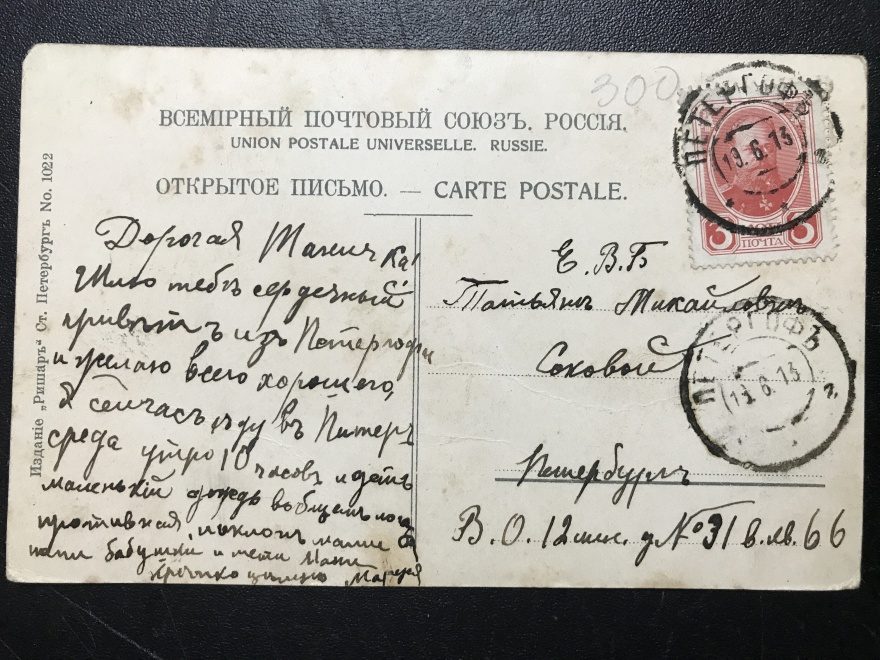 300
ВСЕМІРНЫЙ ПОЧТОВЫЙ СОЮЗЪ. РОССІЯ.
UNION POSTALE UNIVERSELLE. RUSSIE.
ОТКРЫТОЕ ПИСЬМО. — CARTE POSTALE.
Изданіе „Ришаръ“ Ст. Петербургъ No. 1022
ПЕТЕРГОФЪ
19.6.13
3 ПОЧТА 3
Дорогая Маничка!
Шлю тебѣ сердечный
привѣтъ изъ Петергофа
и желаю всего хорошего,
Я сейчасъ ѣду въ Питеръ
среда утро 10 часовъ идетъ
маленькій дождь вообщемъ
противная, поклонъ мамѣ
папѣ бабушкѣ и тети Мани
крѣпко цѣлую
Е. В. Б
Татьянѣ Михайловнѣ
Соковой
ПЕТЕРГОФЪ
19.6.13
Петербургъ
В. О. 12 лин. д. № 31 в. кв. 66